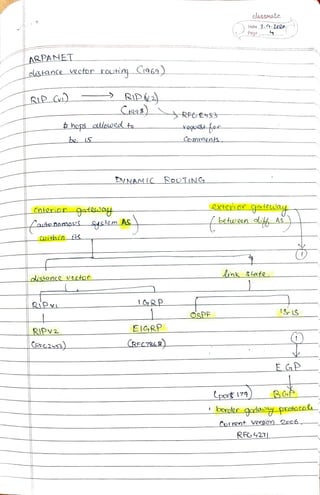 classmate
Date 3.9.2020
Page 4
ARPANET
distance vector routing (1969)
RIP (v1) → RIP (v2)
(1998) → RFC 2453
# hops allowed to request for
be 15 Comments.
DYNAMIC ROUTING
interior gateway exterior gateway
(autonomous system AS) (between diff AS)
within
1
distance vector link state
RIPv1 IGRP
OSPF IS-IS
RIPv2 EIGRP
(RFC2453) (RFC7868)
1
EGP
(port 179) BGP
border gateway protocols
Current version 2006.
RFC 4271